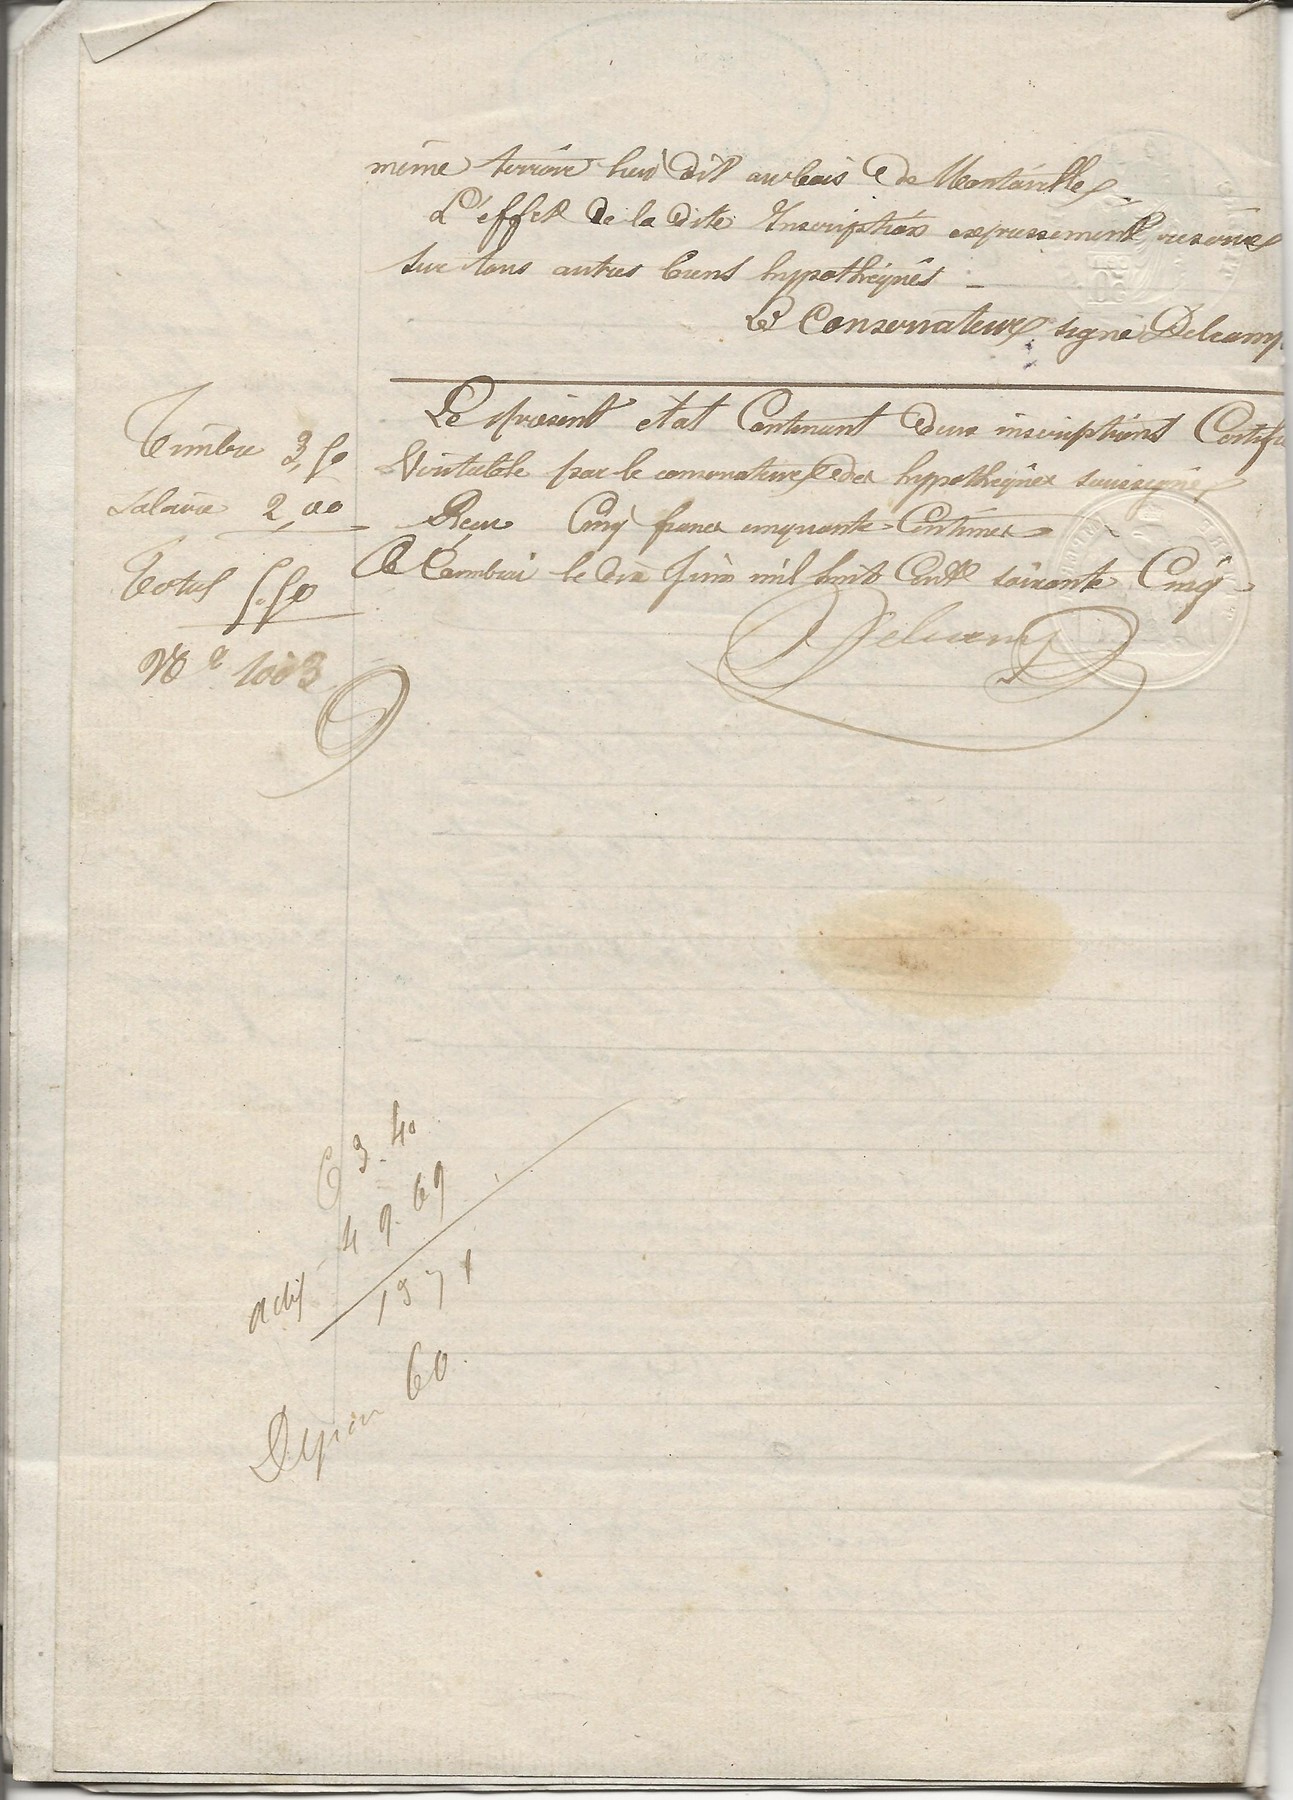 même terroir lieu dit au bois de Montaville
L'effet de la dite Inscription expressement reservé
sur tous autres biens hypothéqués _
Le Conservateur signé Delcamp
Le présent etat Contenant deux inscriptions Certifié
Véritable par le conservateur des hypothèques soussigné
Reçu Cinq francs cinquante Centimes
A Cambrai le dix Juin mil huit Cent soixante Cinq
Delcamp
Timbre 3,50
Salaire 2,00
Total 5.50
N° 1003
63.40
49.69
actif 1371
60